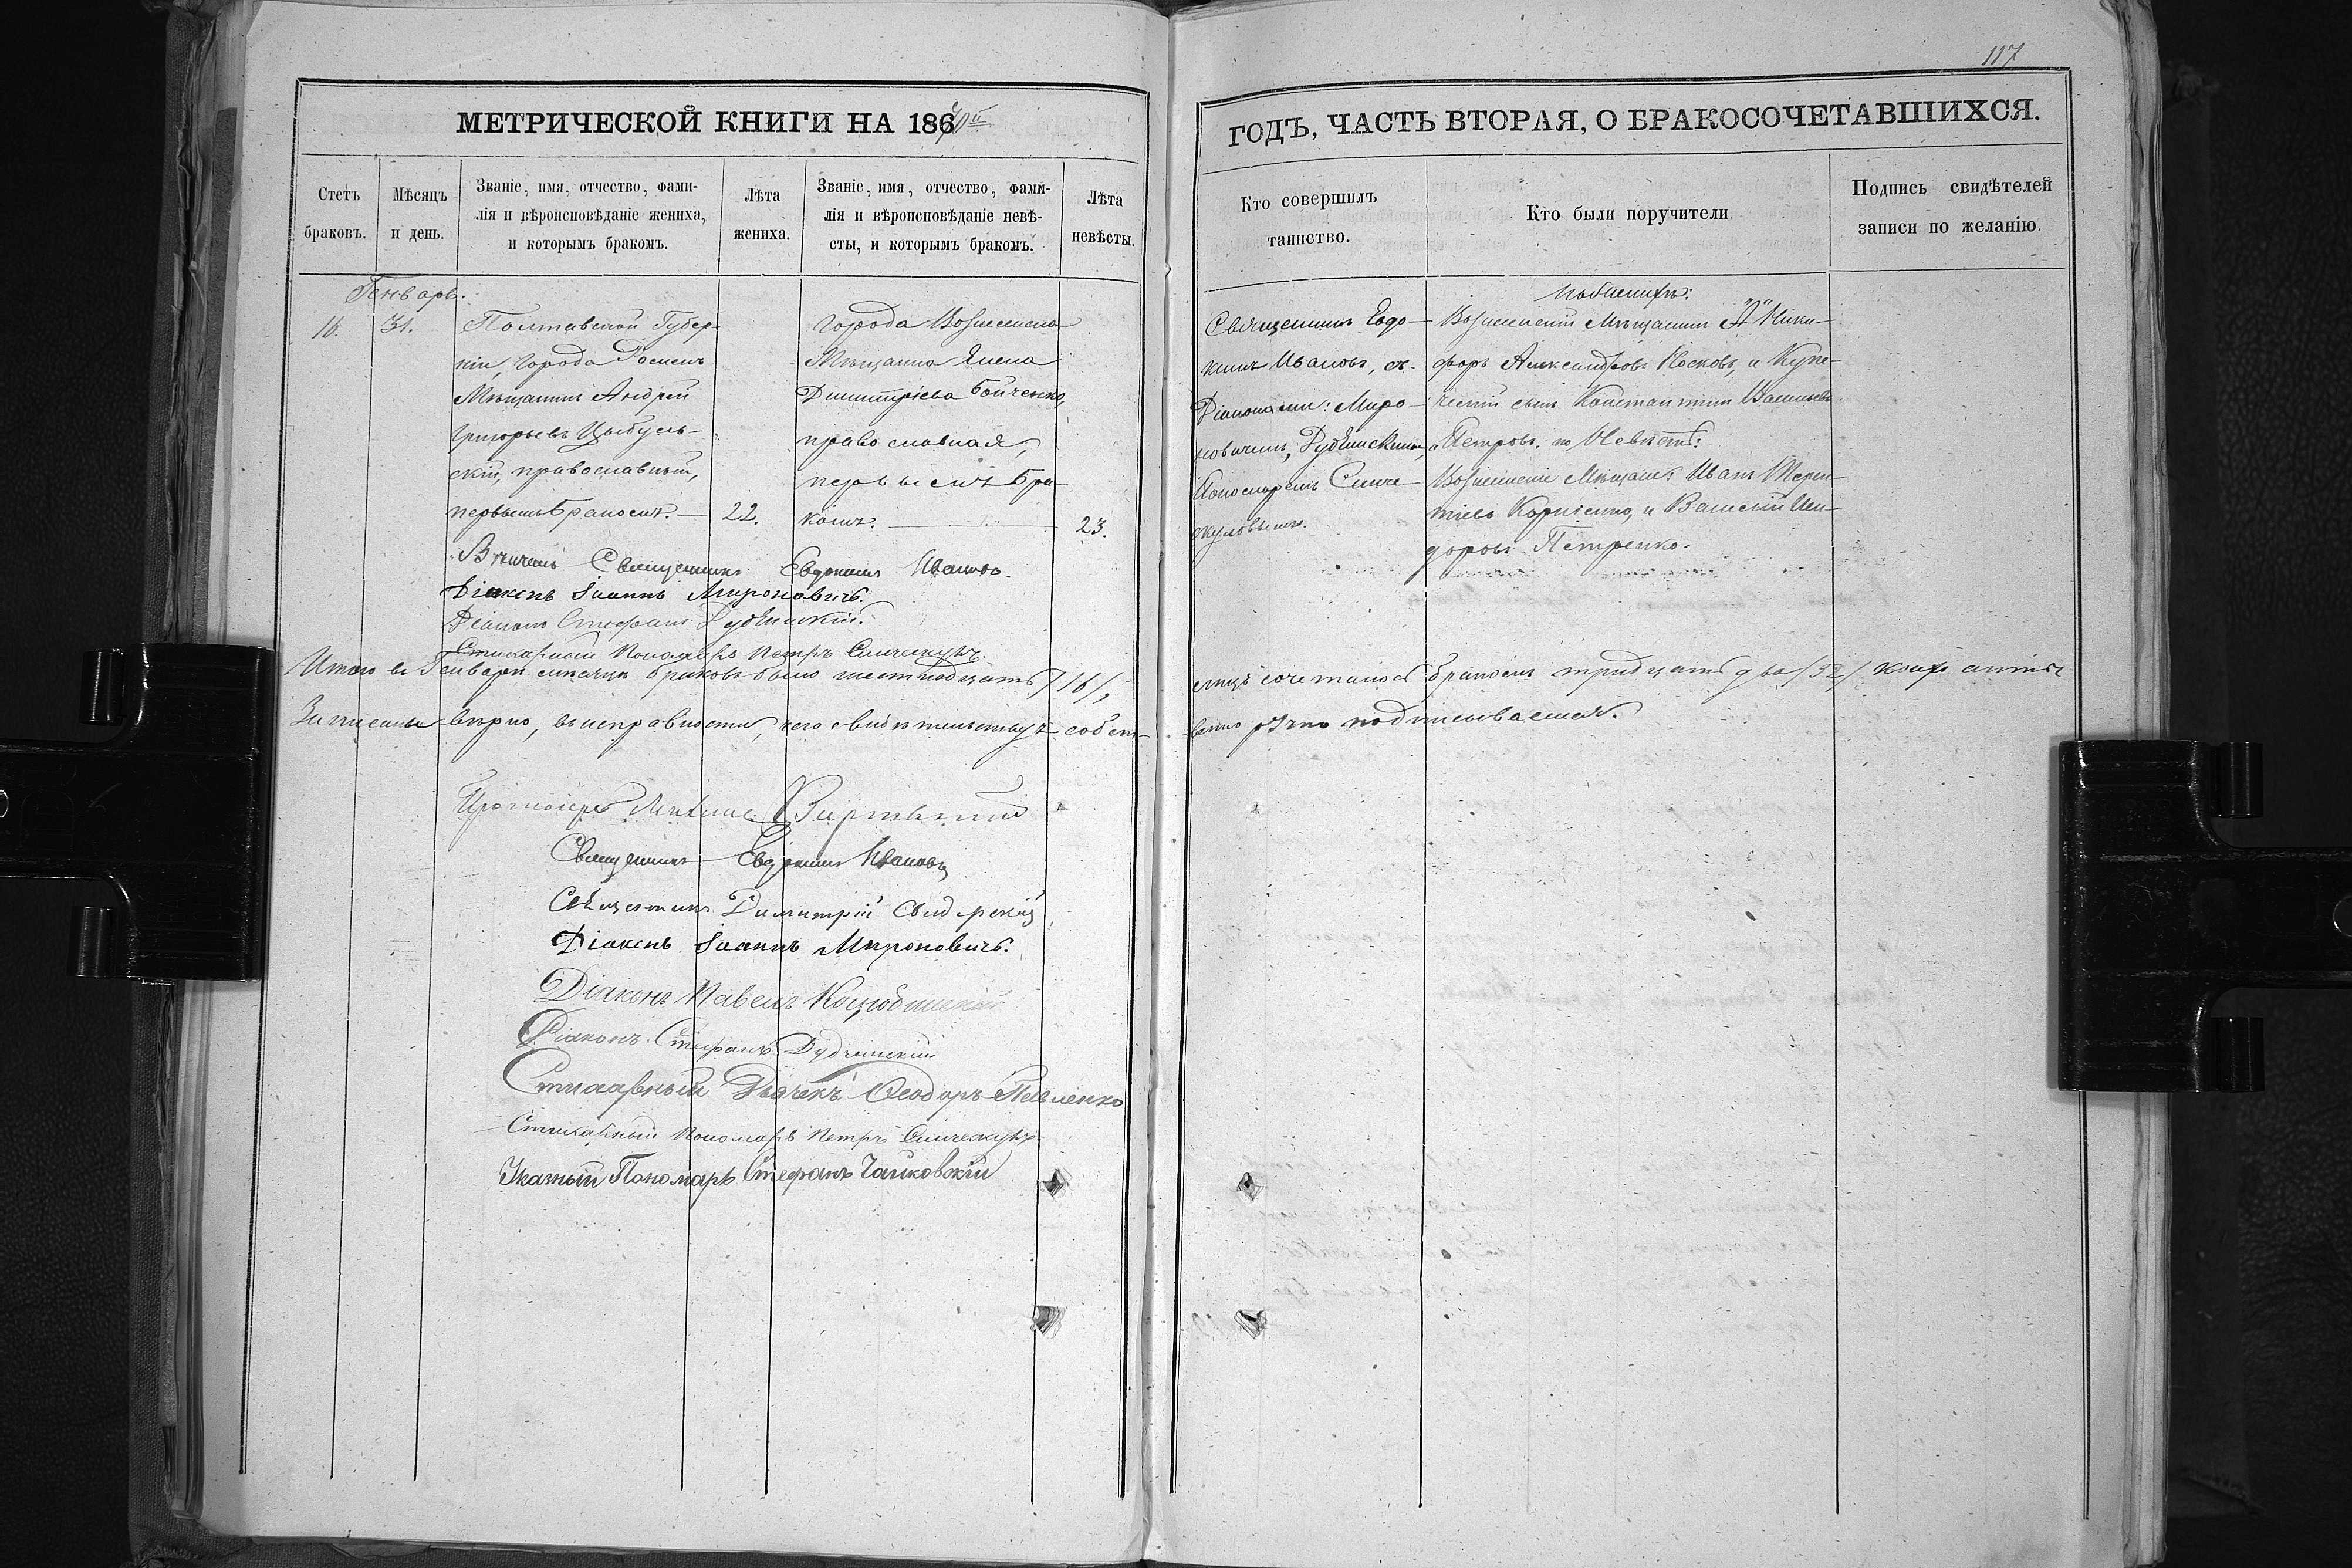 117
МЕТРИЧЕСКОЙ КНИГИ НА 186
ГОДЪ, ЧАСТЬ ВТОРАЯ, О БРАКОСОЧЕТАВШИХСЯ.
Счетъ
браковъ.
Мѣсяцъ
и день.
Званіе, имя, отчество, фами-
лія и вѣроисповѣданіе жениха,
и которымъ бракомъ.
Лѣта
жениха.
Званіе, имя, отчество, фами-
лія и вѣроисповѣданіе невѣ-
сты, и которымъ бракомъ.
Лѣта
невѣсты.
Кто совершилъ
таинство.
Кто были поручители
Подпись свидѣтелей
записи по желанію.
Генварь.
16.
31.
Полтавской Губер-
ніи, города Роменъ
Мѣщанинъ Андрей
Григорьевъ Цыбуль-
скій, православный,
первымъ бракомъ.
22.
города Вознесенска
Мѣщанка Елена
Димитріева Бойченко,
православная,
первымъ бра-
комъ.
23.
Священникъ Евдо-
кимъ Ивановъ, съ
Діаконами: Миро-
новичемъ, Дубчинскимъ,
Пономаремъ Синче-
скуловымъ.
по Женихѣ:
Вознесенскій Мѣщанинъ Ники-
форъ Александровъ Носковъ, и Купе-
ческій сынъ Константинъ Васильевъ
Петровъ. по Невѣстѣ:
Вознесенскіе Мѣщане: Иванъ Терен-
тіевъ Корніенко, и Василій Иси-
доровъ Петренко.
Вѣнчалъ Священникъ Евдокимъ Ивановъ.
Діаконъ Іоаннъ Мироновичъ.
Діаконъ Стефанъ Дубчинскій.
Стихарный Пономарь Петръ Синческулъ.
Итого въ Генварѣ мѣсяцѣ браковъ было шестнадцать /16/,
лицъ сочеталось бракомъ тридцать два /32/ коихъ
Записаны вѣрно, въ исправности, чего свидѣтельствуя собст-
венно ручно подписываемся.
Протоіерей
Священникъ Евдокимъ Ивановъ
Священникъ Димитрій
Діаконъ Іоаннъ Мироновичъ.
Діаконъ Павелъ Коцюбинскій
Діаконъ Стефанъ Дубчинскій
Стихарный Дьячекъ Ѳеодоръ Павленко
Стихарный Пономарь Петръ Синческулъ.
Указный Пономарь Стефанъ Чайковскій